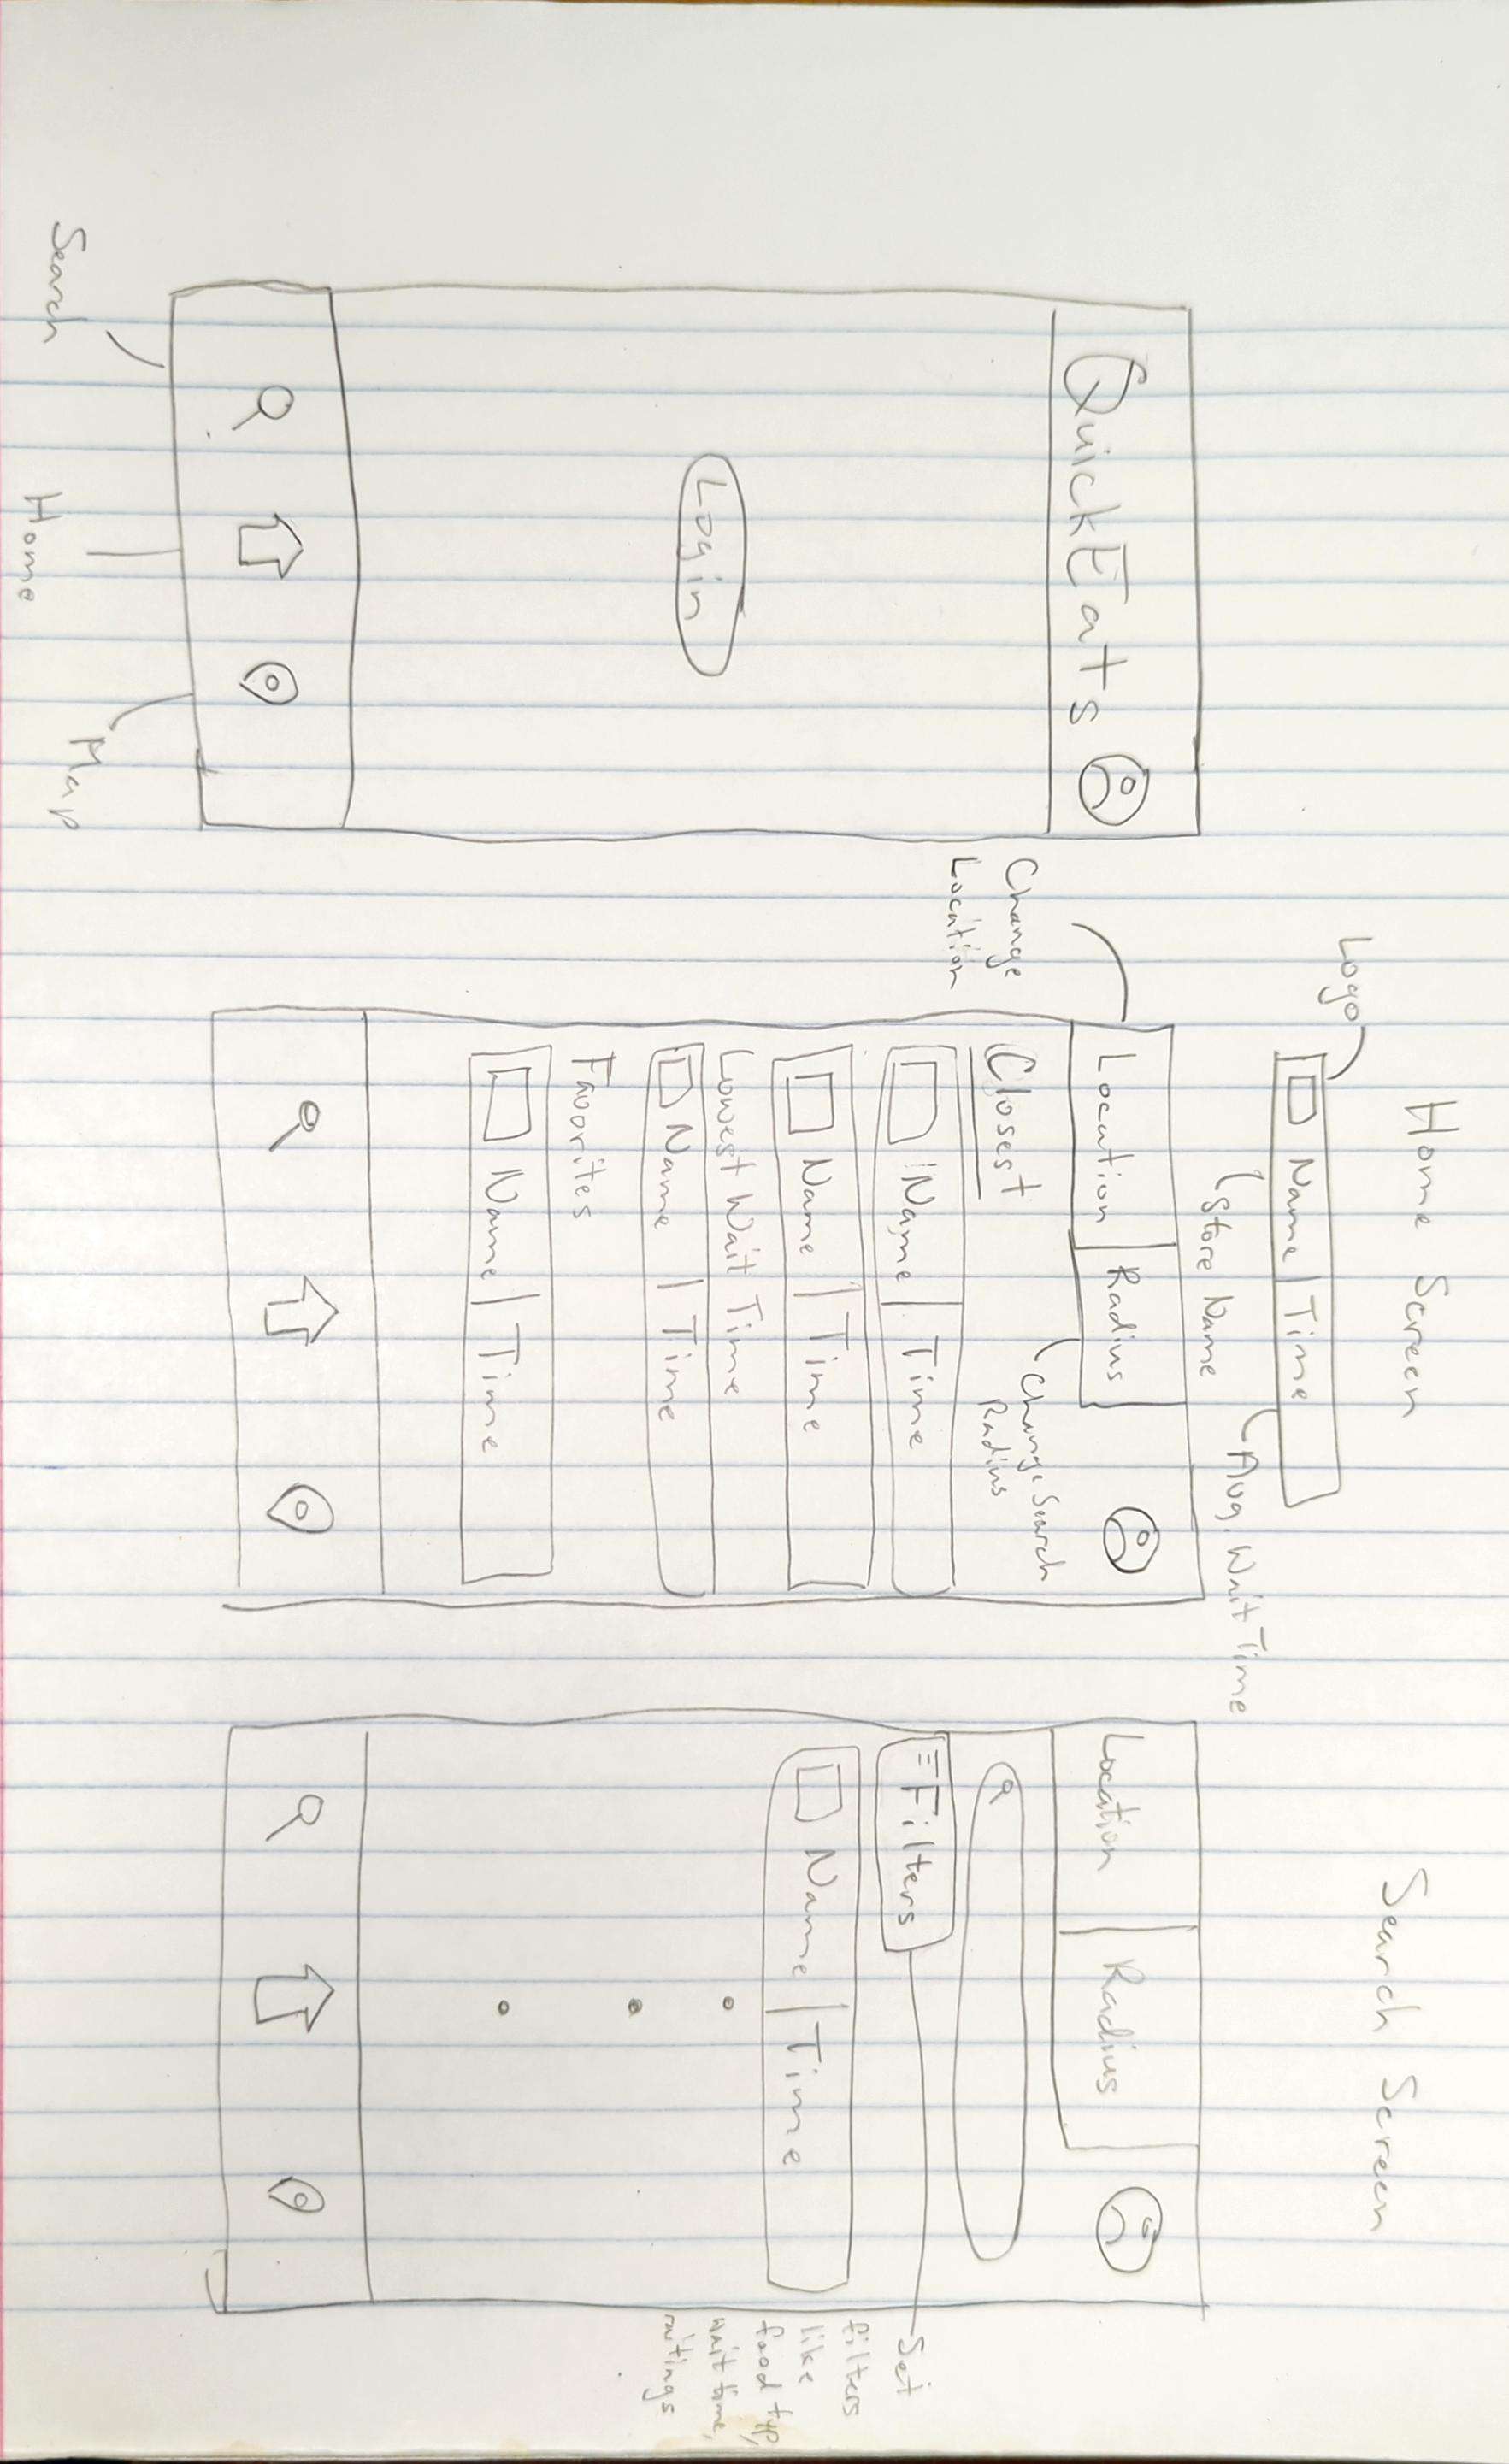 QuickEats
Login
Search
Home
Map
Home Screen
Logo
Name | Time
Store Name
Avg. Wait Time
Change
Location
Location | Radius
Change Search
Radius
Closest
Name | Time
Name | Time
Lowest Wait Time
Name | Time
Favorites
Name | Time
Search Screen
Location | Radius
Filters
Name | Time
Set
filters
like
food typ,
wait time,
ratings